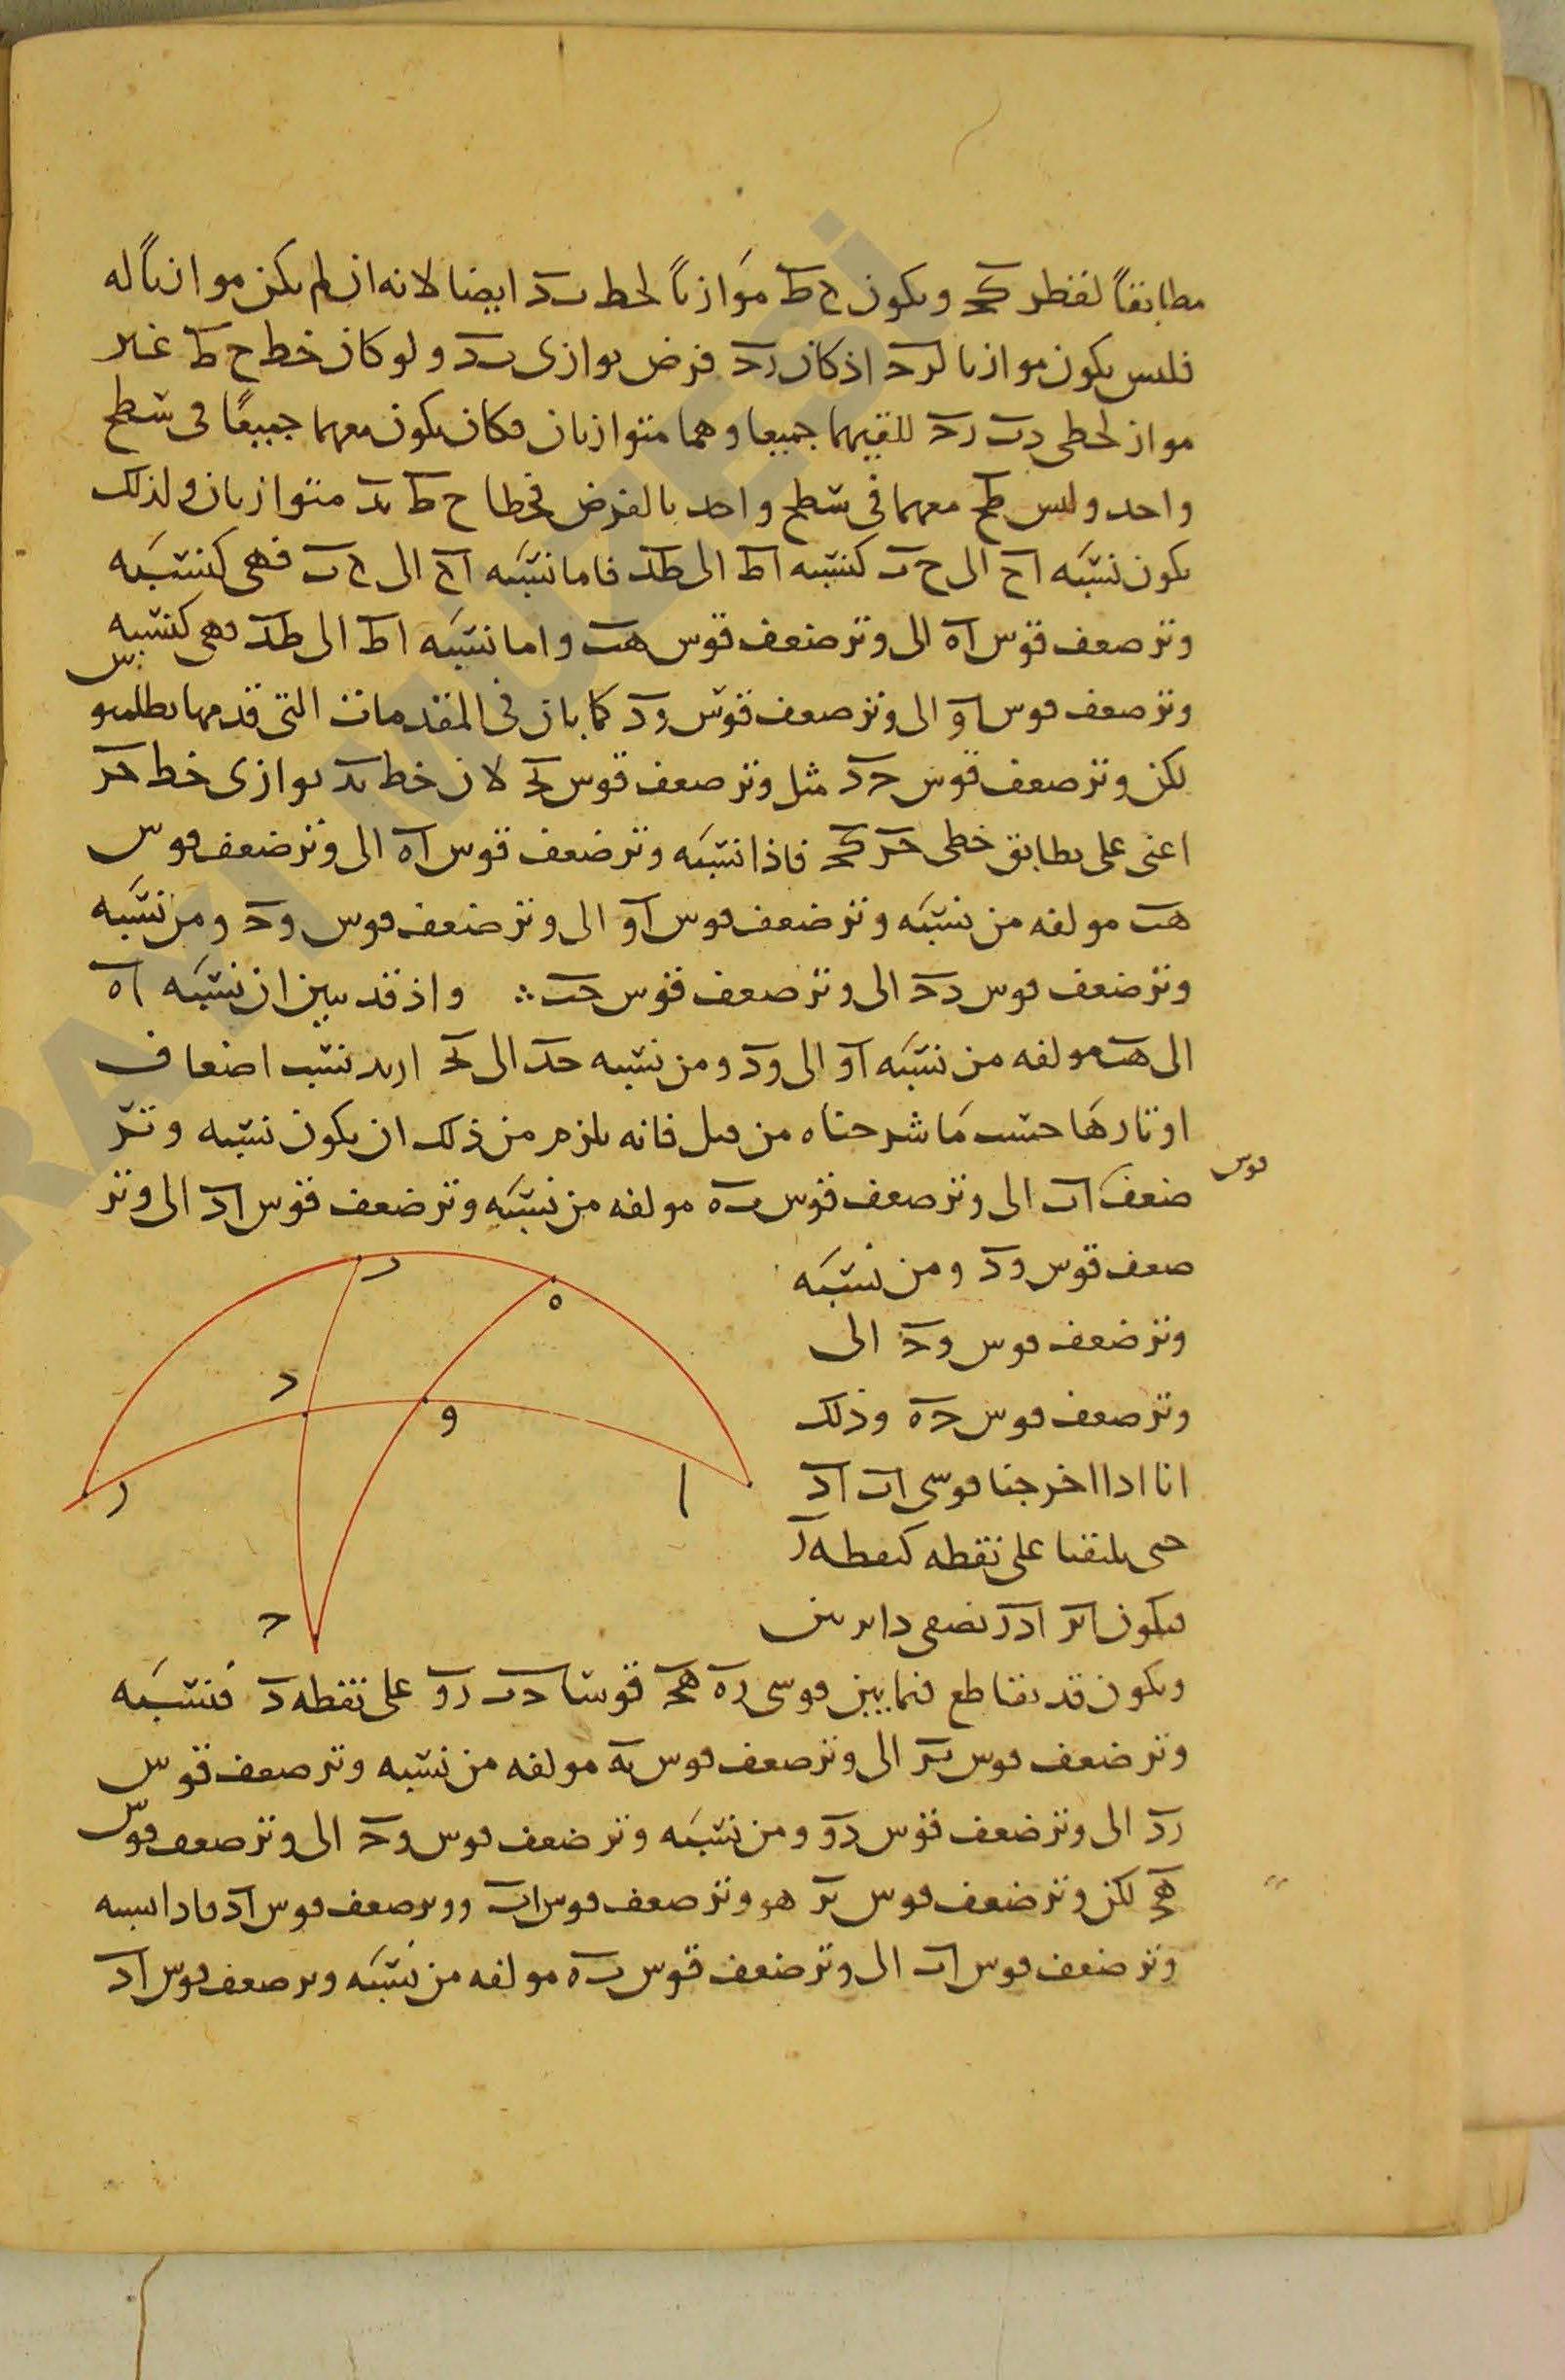 مطابقاً لقطر كح ويكون ح ط موازياً لخط بد ايضا لانه ان لم يكن موازياً له
فليس يكون موازيا لرح اذ كان رح فرض يوازى بد ولو كان خط ح ط غير
مواز لخطى دب رح للقيهما جميعا وهما متوازيان فكان يكون معهما جميعًا فى سطح
واحد وليس طح معهما فى سطح واحد بالفرض فخطا ح ط بد متوازيان ولذلك
يكون نسبه اح الى ح ب كنسبه اط الى طد فاما نسبه اح الى ح ب فهى كنسبه
وتر ضعف قوس اه الى وتر ضعف قوس هب واما نسبه اط الى طد فهى كنسبه
وتر ضعف قوس او الى وتر ضعف قوس ود كما بان فى المقدمات التى قدمها بطلميوس
لكن وتر ضعف قوس حد مثل وتر ضعف قوس بح لان خط بد يوازى خط حر
اعنى على يطابق خطى حر كح فاذا نسبه وتر ضعف قوس اه الى وتر ضعف قوس
هب مولفه من نسبه وتر ضعف قوس او الى وتر ضعف قوس ود ومن نسبه
وتر ضعف قوس دح الى وتر ضعف قوس حب ؞ واذ قد تبين ان نسبه اه
الى هب مولفه من نسبه او الى ود ومن نسبه حد الى بح اريد نسب اضعاف
اوتارها حسب ما شرحناه من قبل فانه يلزم من ذلك ان يكون نسبه وتر
قوس
ضعف اب الى وتر ضعف قوس به مولفه من نسبه وتر ضعف قوس اد الى وتر
ضعف قوس ود ومن نسبه
وتر ضعف قوس وح الى
وتر ضعف قوس حه وذلك
انا اذا اخرجنا قوسى اب اد
حتى يلتقيا على نقطه كنقطه ر
فيكون ابر ادر نصفى دايرتين
ويكون قد تقاطع فيما بين قوسى ره هح قوسا حب رو على نقطه د فنسبه
وتر ضعف قوس بر الى وتر ضعف قوس به مولفه من نسبه وتر ضعف قوس
رد الى وتر ضعف قوس دو ومن نسبه وتر ضعف قوس وح الى وتر ضعف قوس
هح لكن وتر ضعف قوس بر هو وتر ضعف قوس اب ووتر ضعف قوس اد فاذا نسبه
وتر ضعف قوس اب الى وتر ضعف قوس به مولفه من نسبه وتر ضعف قوس اد
ر
ه
د
و
ا
ر
ح